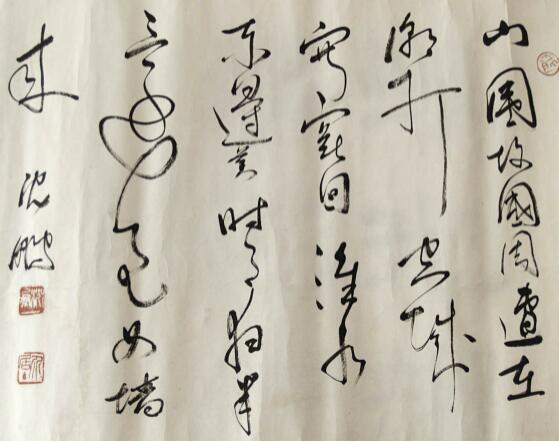 山圍故國周遭在
潮打空城
寂寞回淮水
东邊舊时月夜深
還過女墙
来
沈鹏